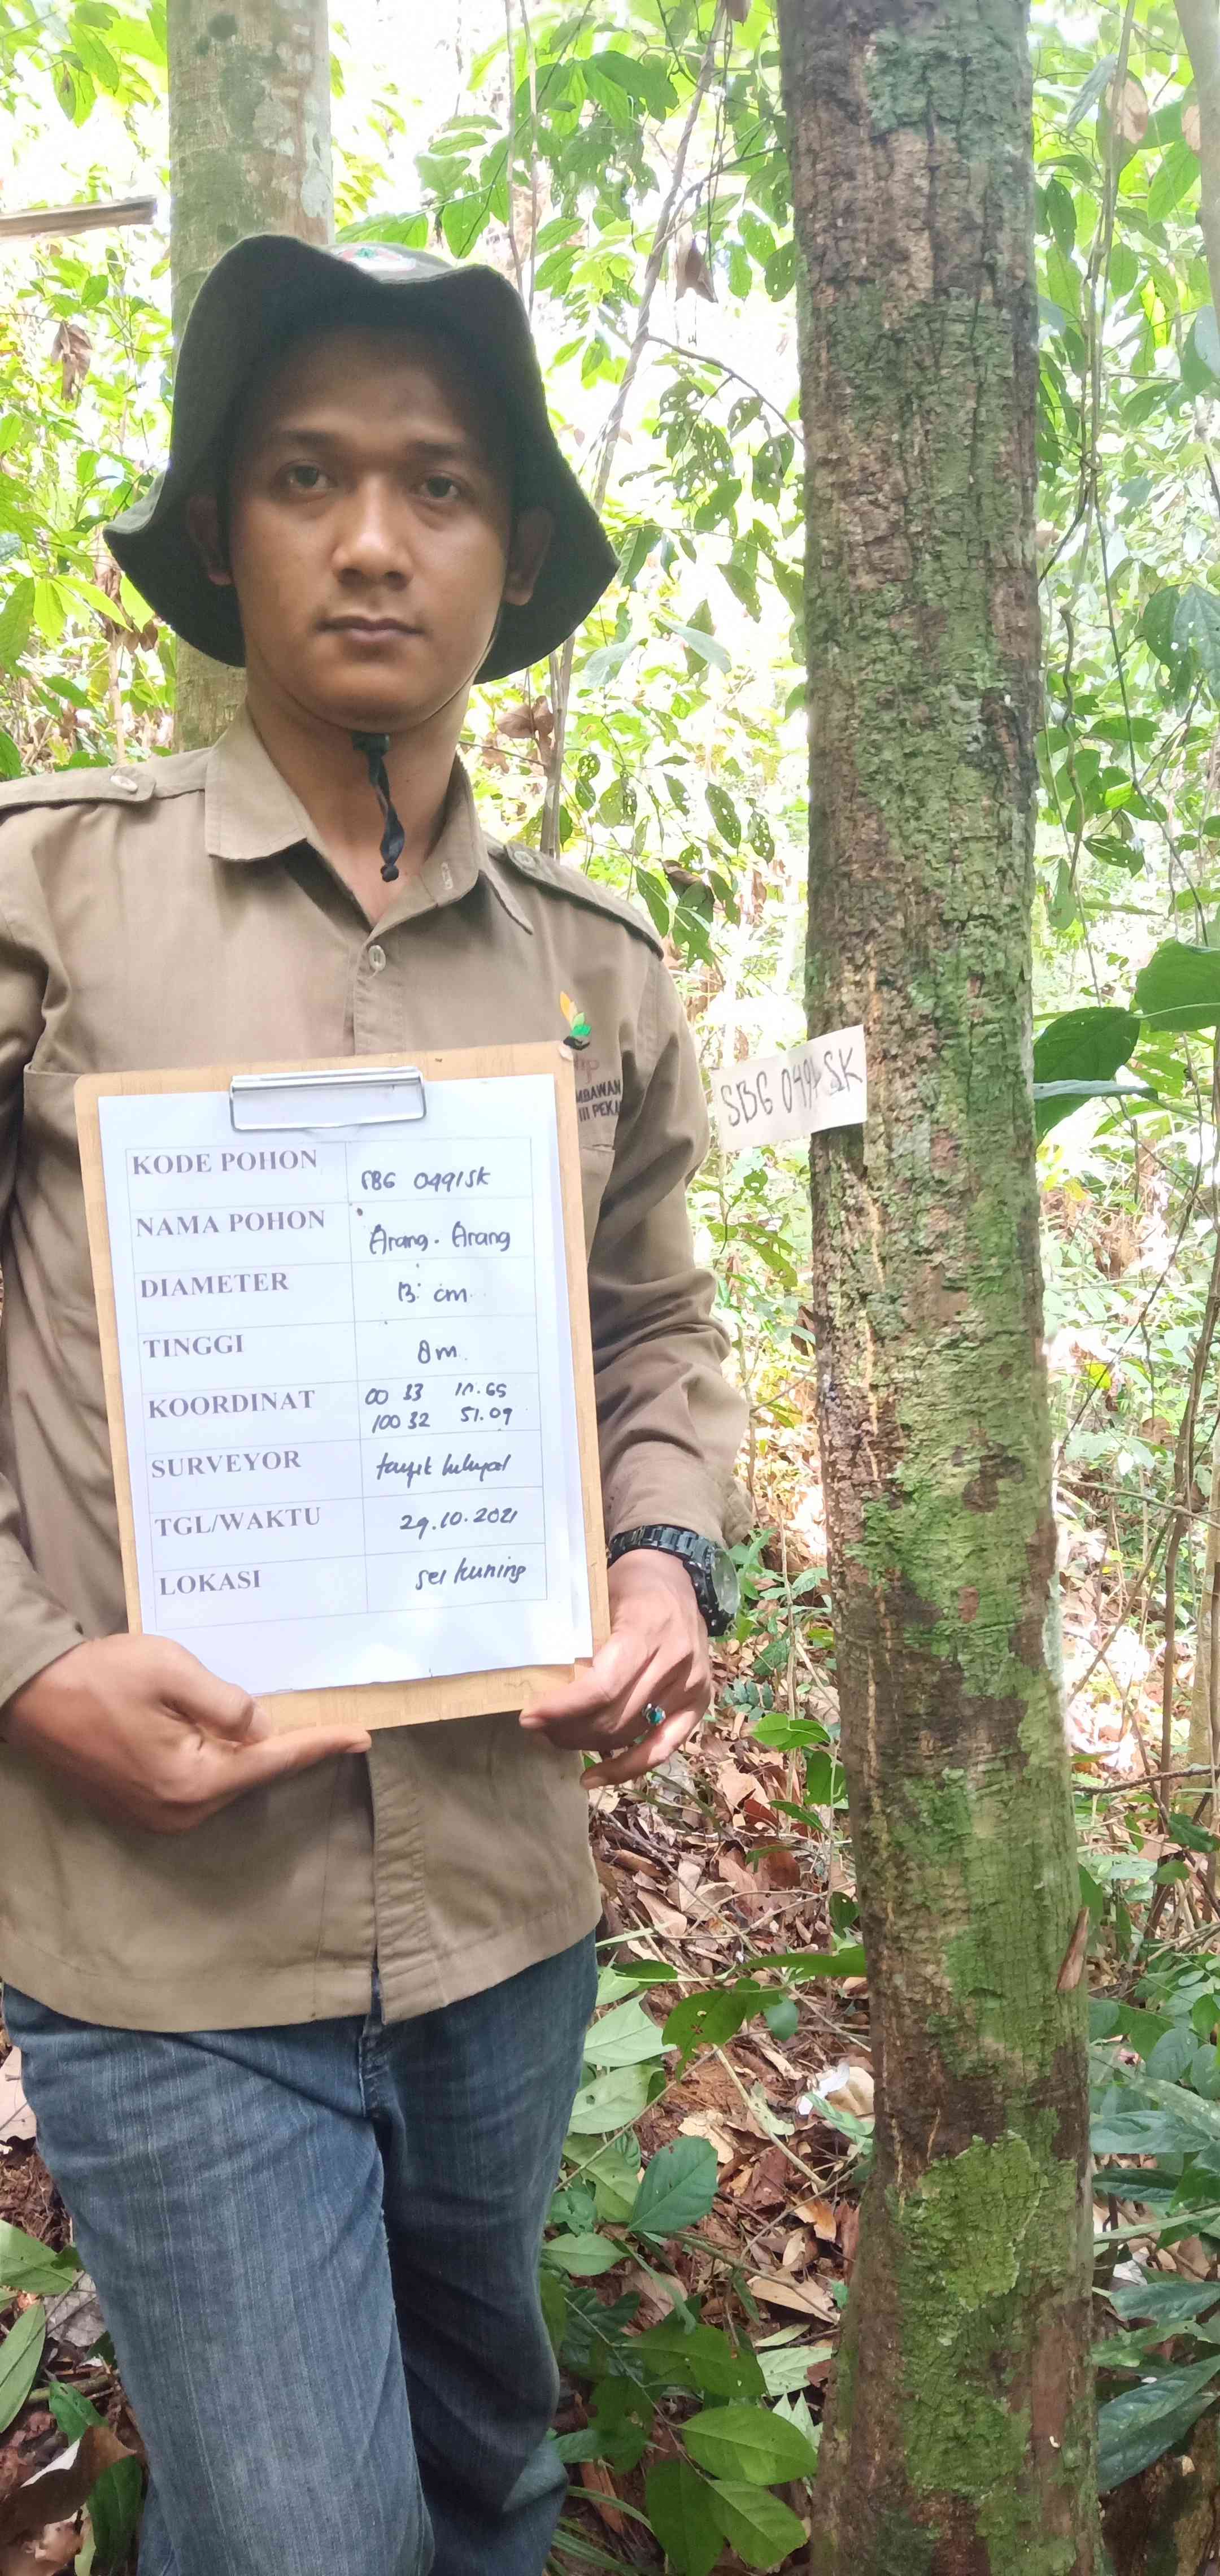 MBAWAN
III PEKA
SBG 0491SK
KODE POHON SBG 0491SK
NAMA POHON Arang. Arang
DIAMETER 13 cm
TINGGI 8m
KOORDINAT 00 33
100 32 51.09
SURVEYOR
TGL/WAKTU 29.10.2021
LOKASI sei kuning